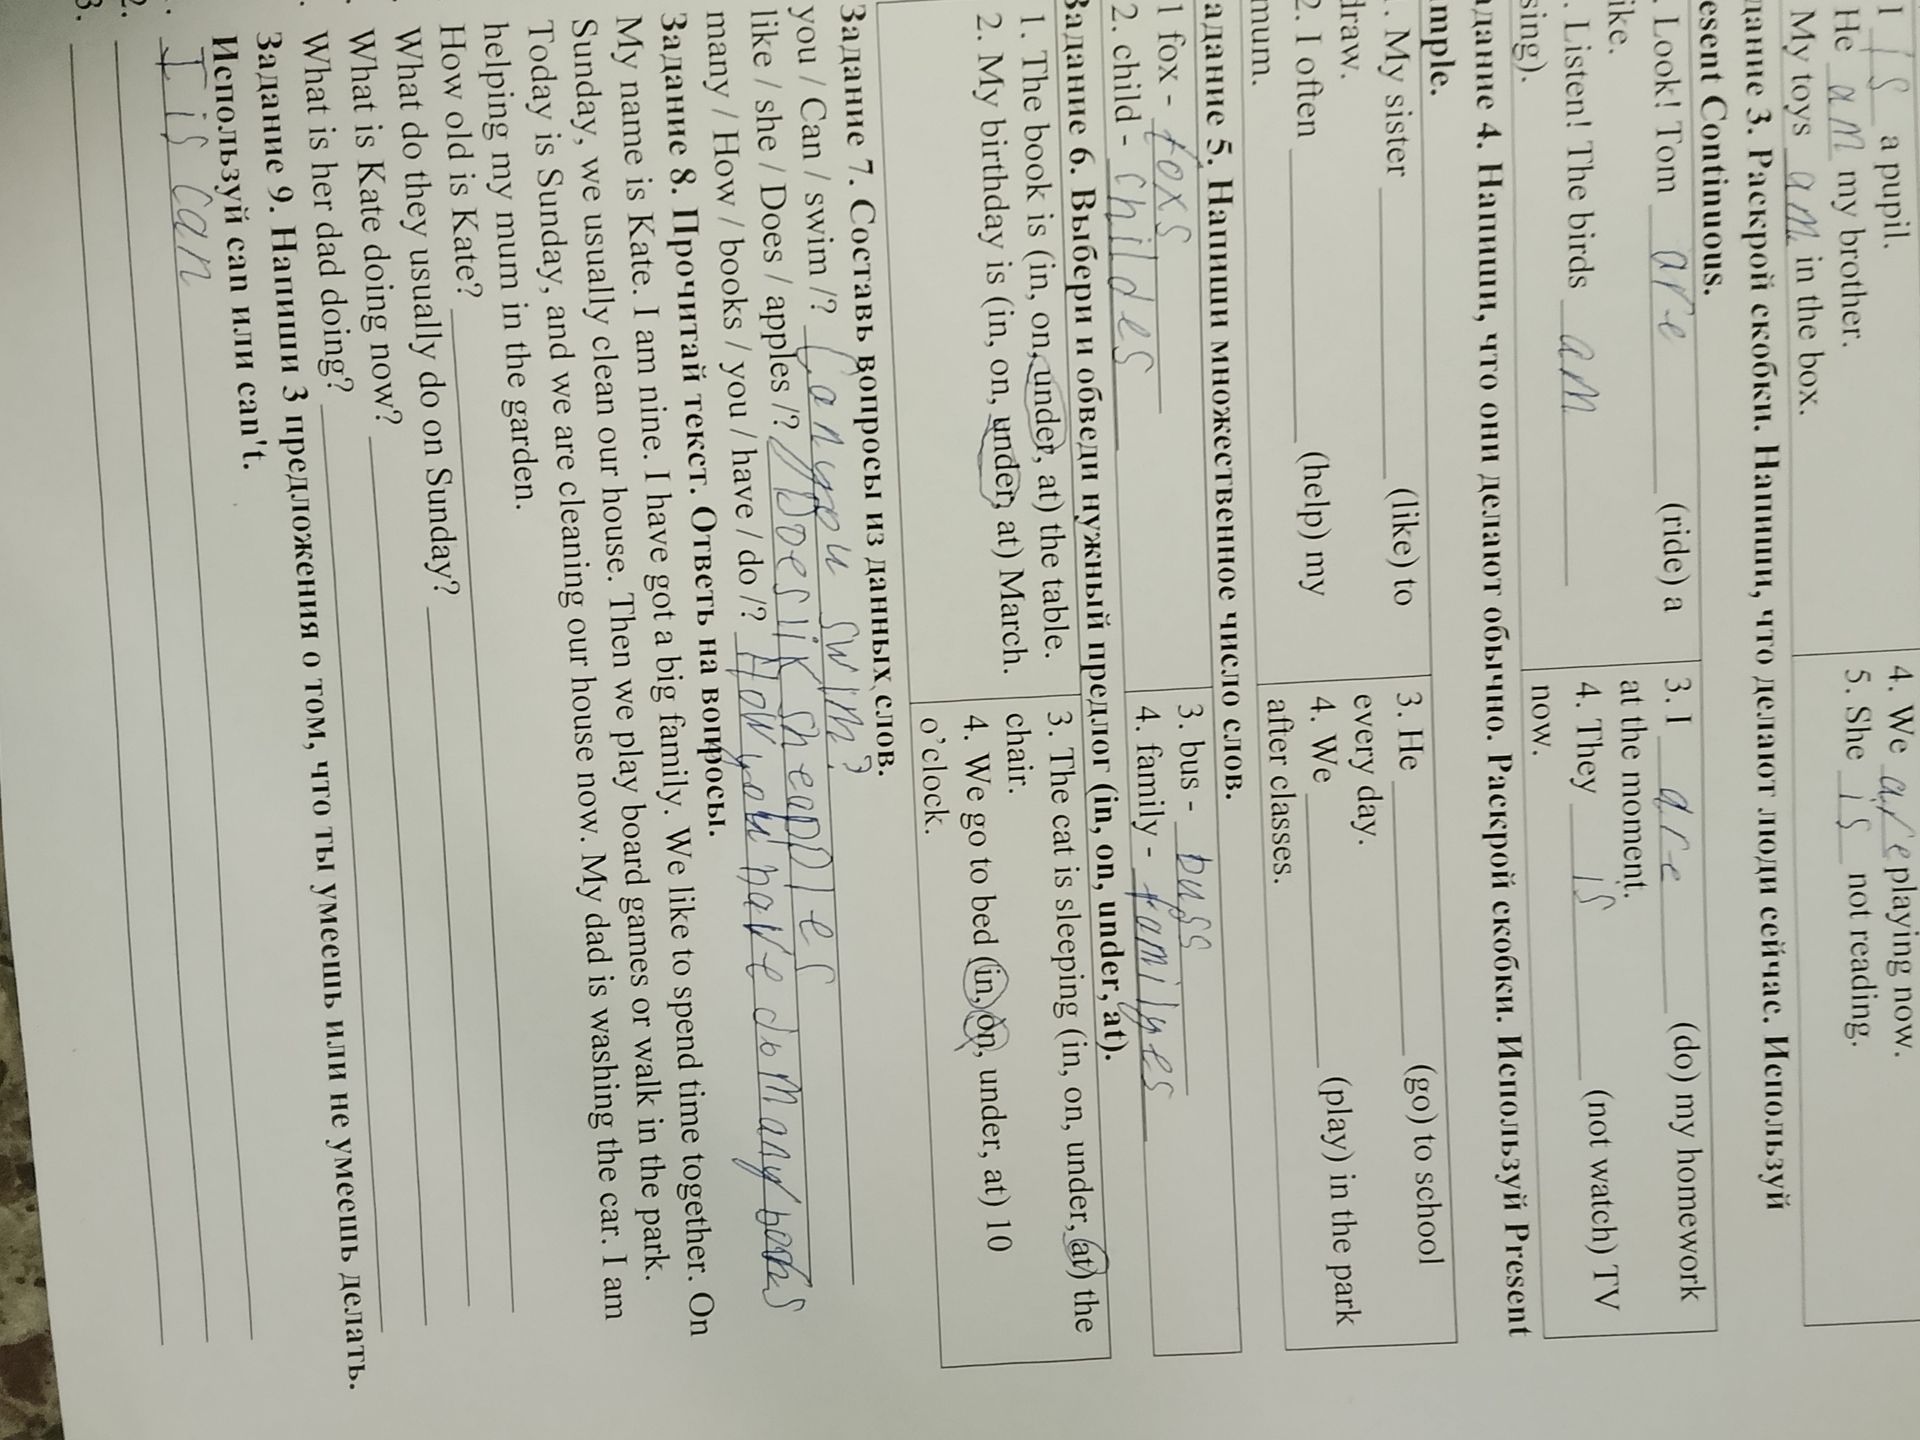 I is a pupil.
He am my brother.
My toys am in the box.
4. We are playing now.
5. She is not reading.
дание 3. Раскрой скобки. Напиши, что делают люди сейчас. Используй
esent Continuous.
. Look! Tom are (ride) a
ike.
. Listen! The birds am
sing).
3. I are (do) my homework
at the moment.
4. They is (not watch) TV
now.
адание 4. Напиши, что они делают обычно. Раскрой скобки. Используй Present
mple.
. My sister (like) to
draw.
2. I often (help) my
mum.
3. He (go) to school
every day.
4. We (play) in the park
after classes.
адание 5. Напиши множественное число слов.
1 fox - foxs
2. child - childes
3. bus - buss
4. family - familyes
Задание 6. Выбери и обведи нужный предлог (in, on, under, at).
1. The book is (in, on, under, at) the table.
2. My birthday is (in, on, under, at) March.
3. The cat is sleeping (in, on, under, at) the
chair.
4. We go to bed (in, on, under, at) 10
o’clock.
Задание 7. Составь вопросы из данных слов.
you / Can / swim /? Can you swim?
like / she / Does / apples /? Does lik she apples
many / How / books / you / have / do /? How you have do many books
Задание 8. Прочитай текст. Ответь на вопросы.
My name is Kate. I am nine. I have got a big family. We like to spend time together. On
Sunday, we usually clean our house. Then we play board games or walk in the park.
Today is Sunday, and we are cleaning our house now. My dad is washing the car. I am
helping my mum in the garden.
How old is Kate?
What do they usually do on Sunday?
What is Kate doing now?
What is her dad doing?
Задание 9. Напиши 3 предложения о том, что ты умеешь или не умеешь делать.
Используй can или can't.
. I is can
2.
3.